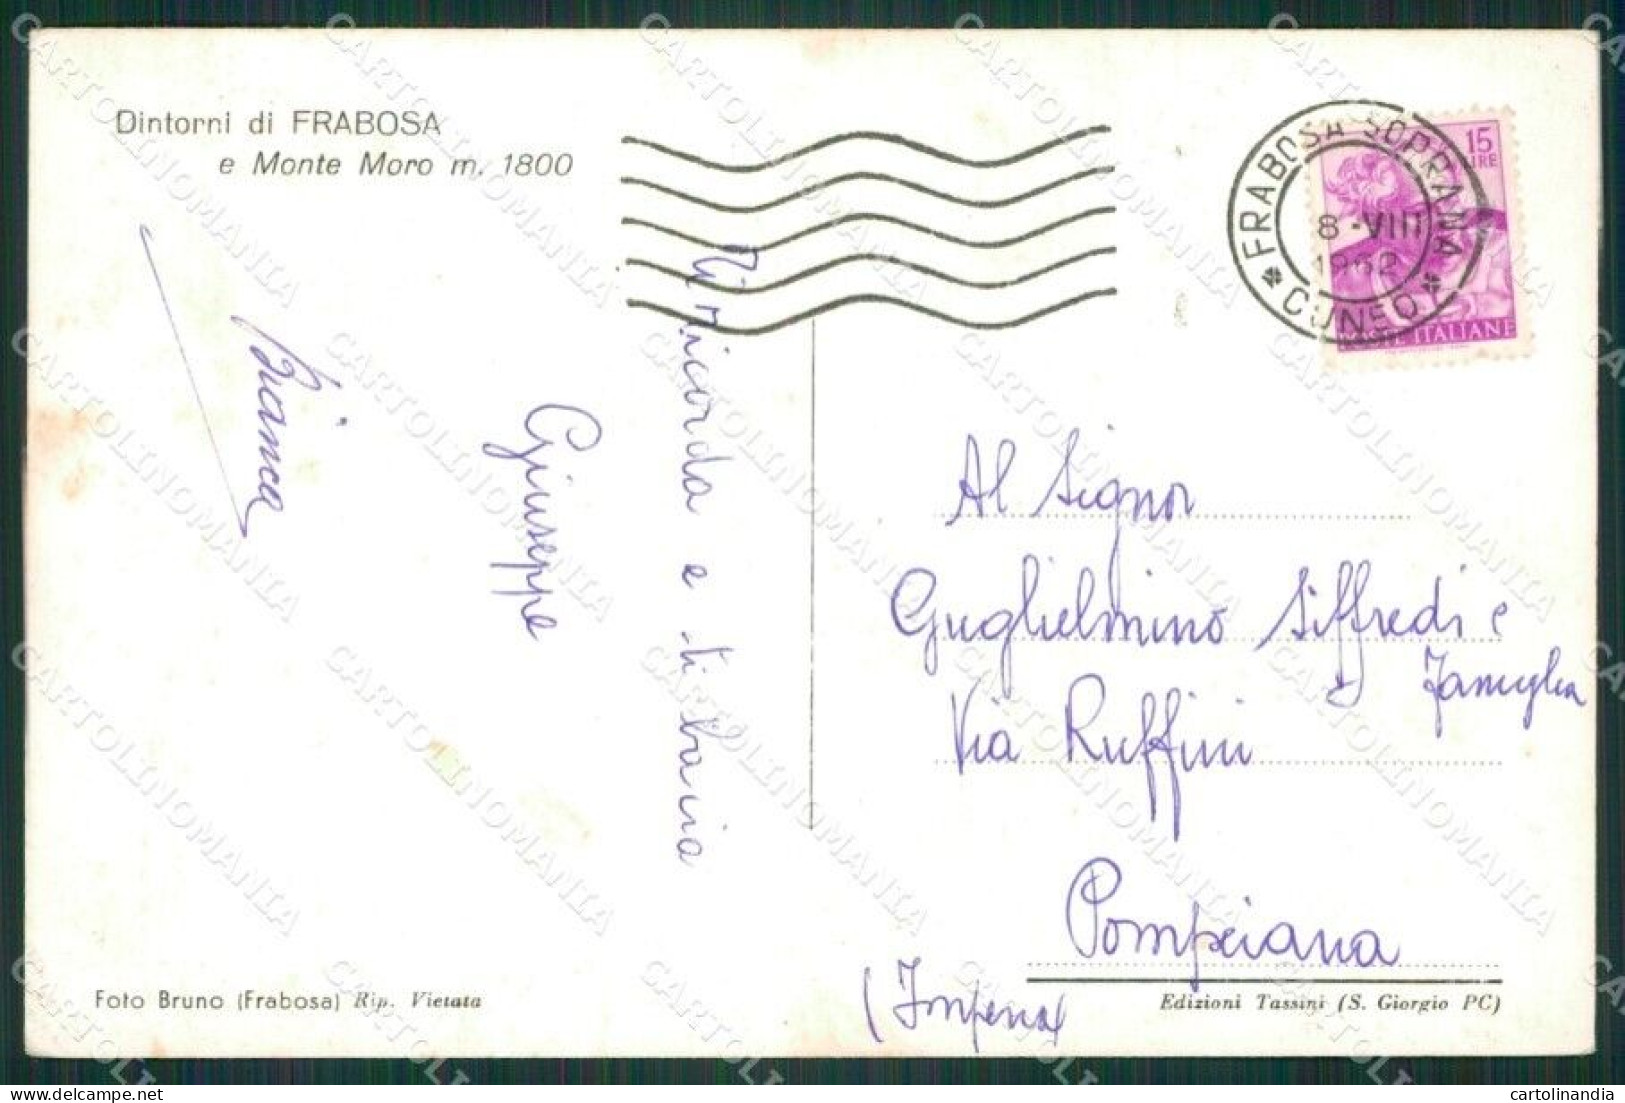 Dintorni di FRABOSA
e Monte Moro m. 1800
FRABOSA SOPRANA
8-VIII
1962
* CUNEO *
15
LIRE
POSTE ITALIANE
Ti ricorda e ti bacia
Giuseppe
Bianca
Al Signor
Guglielmino Siffredi e
Famiglia
Via Ruffini
Pompeiana
(Imperia)
Foto Bruno (Frabosa) Rip. Vietata
Edizioni Tassini (S. Giorgio PC)
CARTOLINOMANIA
cartolinandia